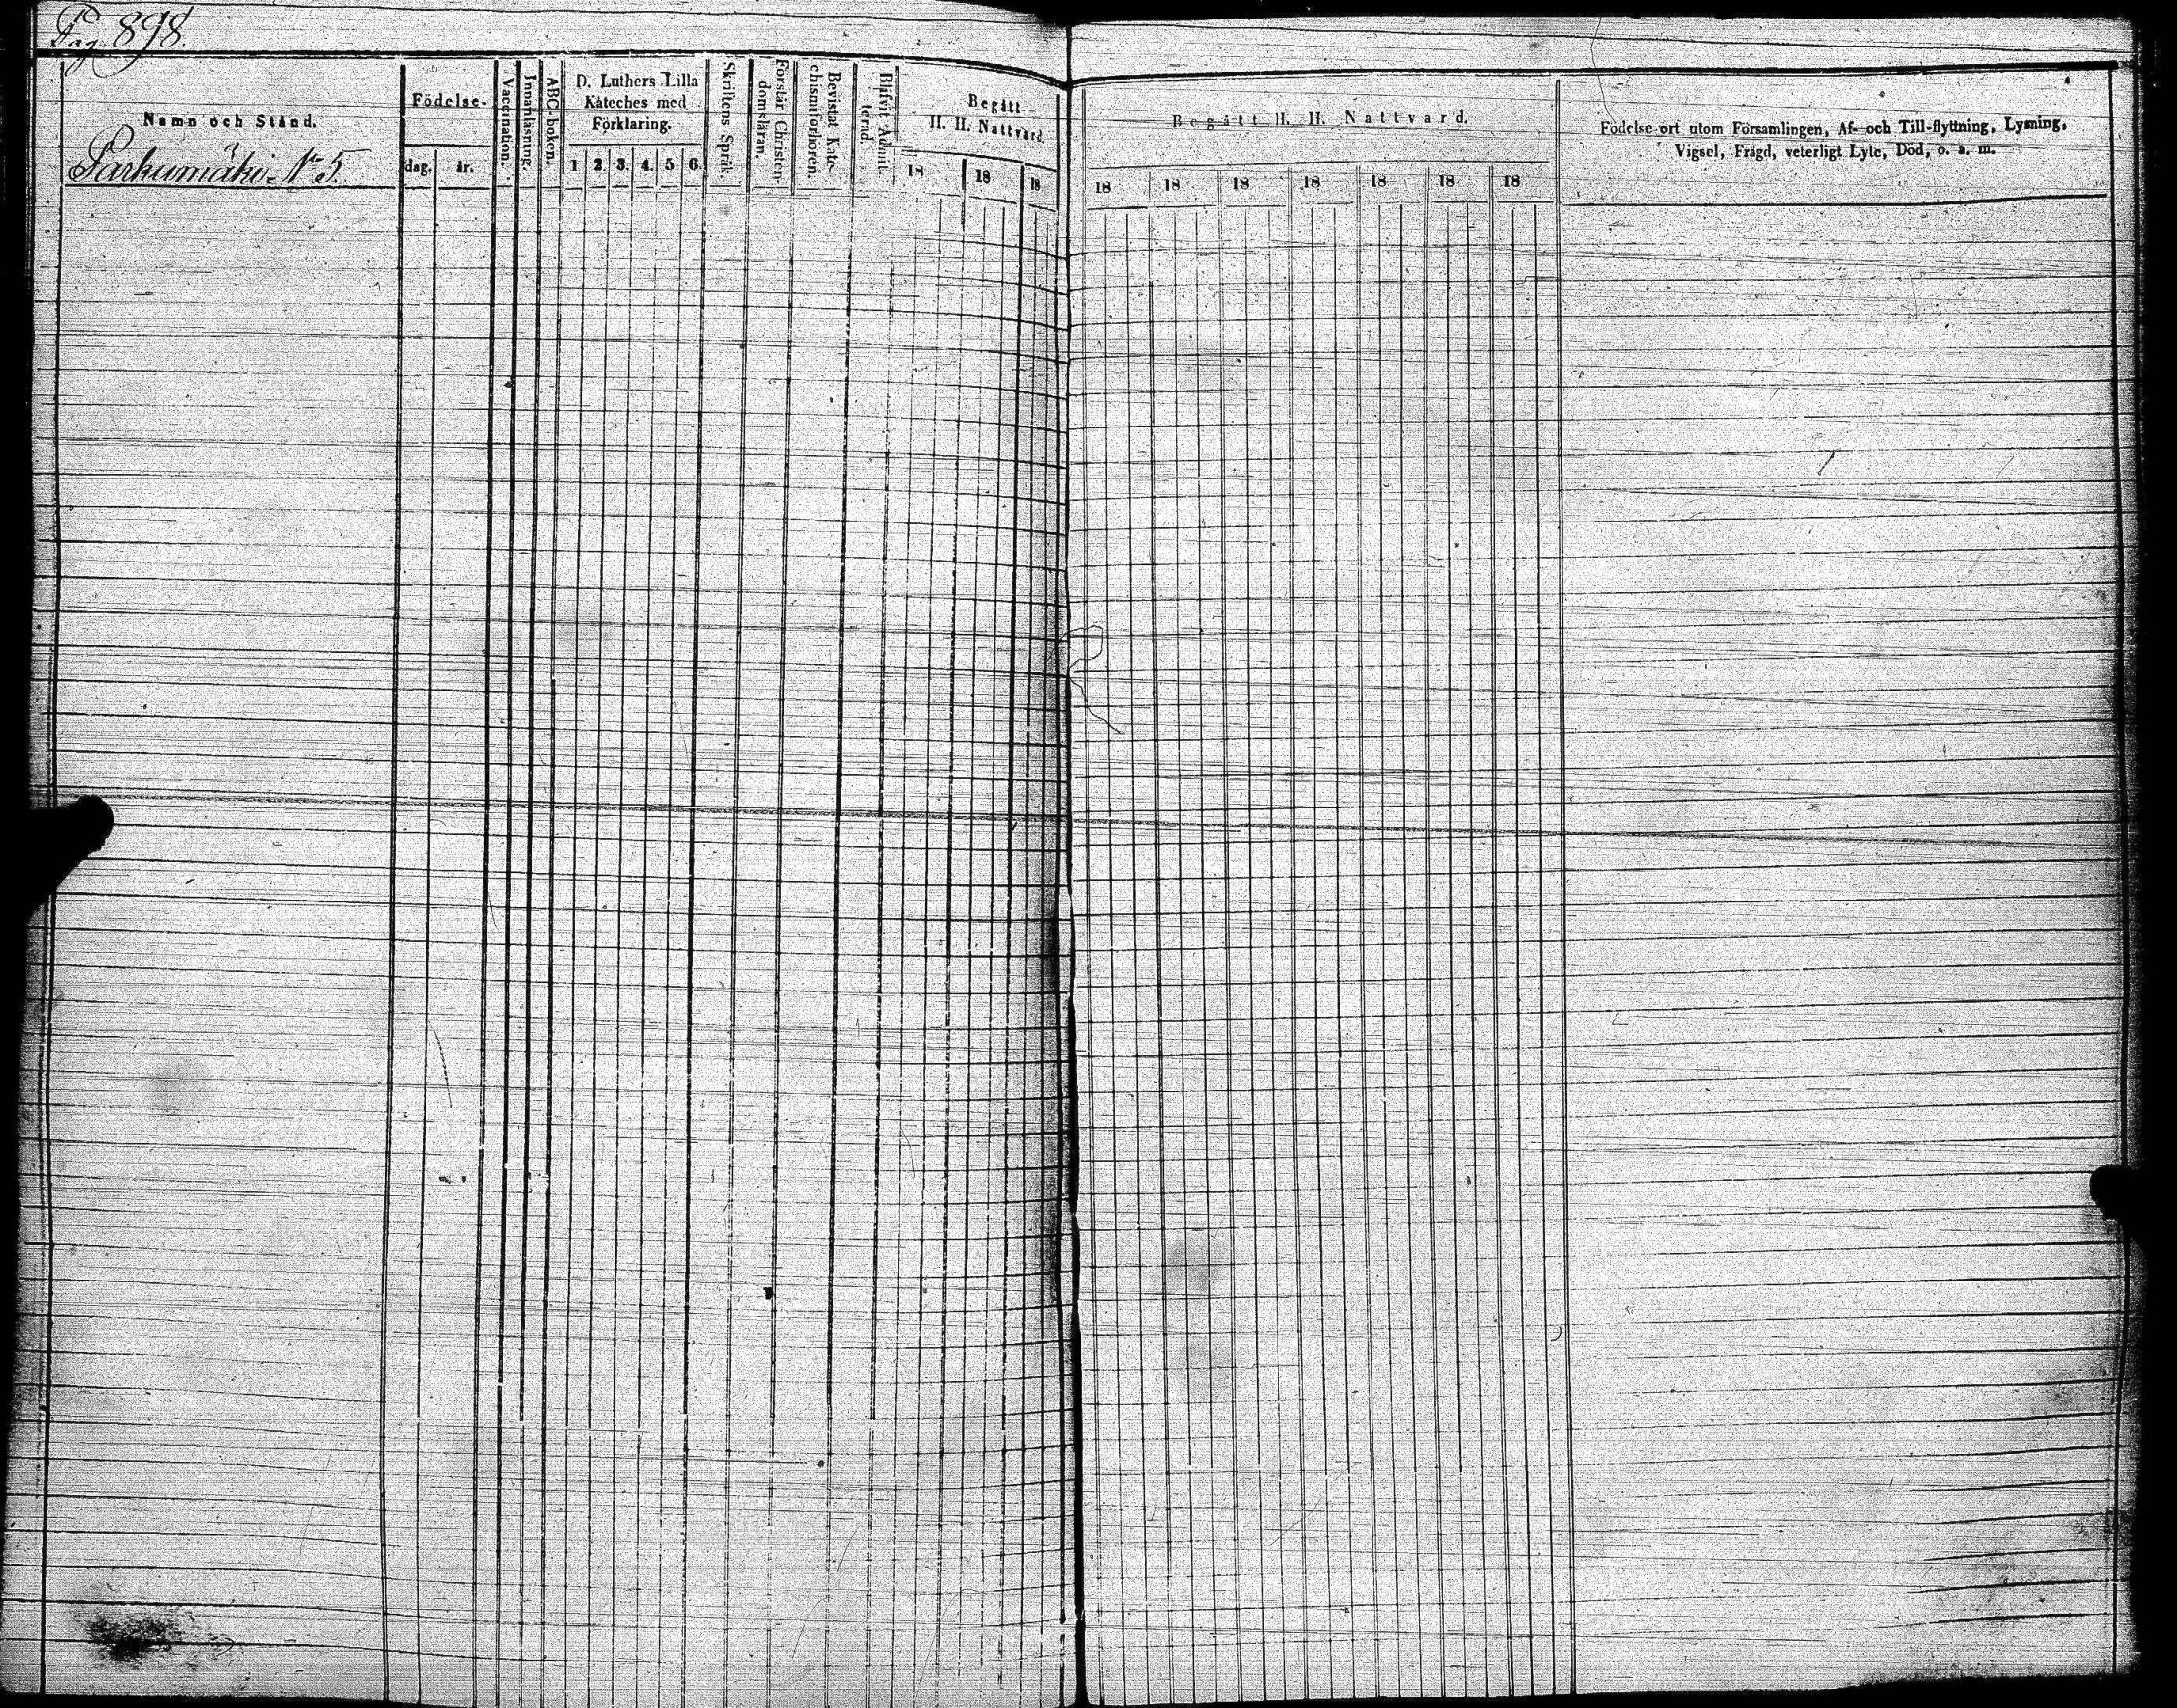 Pag. 898.
Namn och Stånd.
Parkumäki N° 5.
Födelse-
dag. år.
Vaccination.
Innanläsning.
ABC-boken.
D. Luthers Lilla
Kateches med
Förklaring.
1 2. 3. 4. 5 6.
Skriftens Språk.
Förstår Christen-
domsläran.
Bevistat Kate-
chismiförhören.
Blifvit Admit-
terad.
Begått
H. H. Nattvard.
18 18 18
Begått H. H. Nattvard.
18 18 18 18 18 18 18
Födelse-ort utom Församlingen, Af- och Till-flyttning, Lysning,
Vigsel, Frägd, veterligt Lyte, Död, o. s. m.